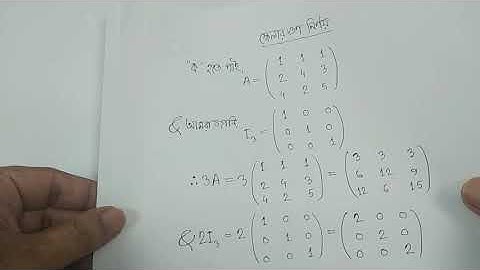 "ক" হতে পাই,
A = (1 1 1
2 4 3
4 2 5)
& আমরা জানি,
I₃ = (1 0 0
0 1 0
0 0 1)
∴ 3A = 3 (1 1 1
2 4 3
4 2 5) = (3 3 3
6 12 9
12 6 15)
& 2I₃ = 2 (1 0 0
0 1 0
0 0 1) = (2 0 0
0 2 0
0 0 2)